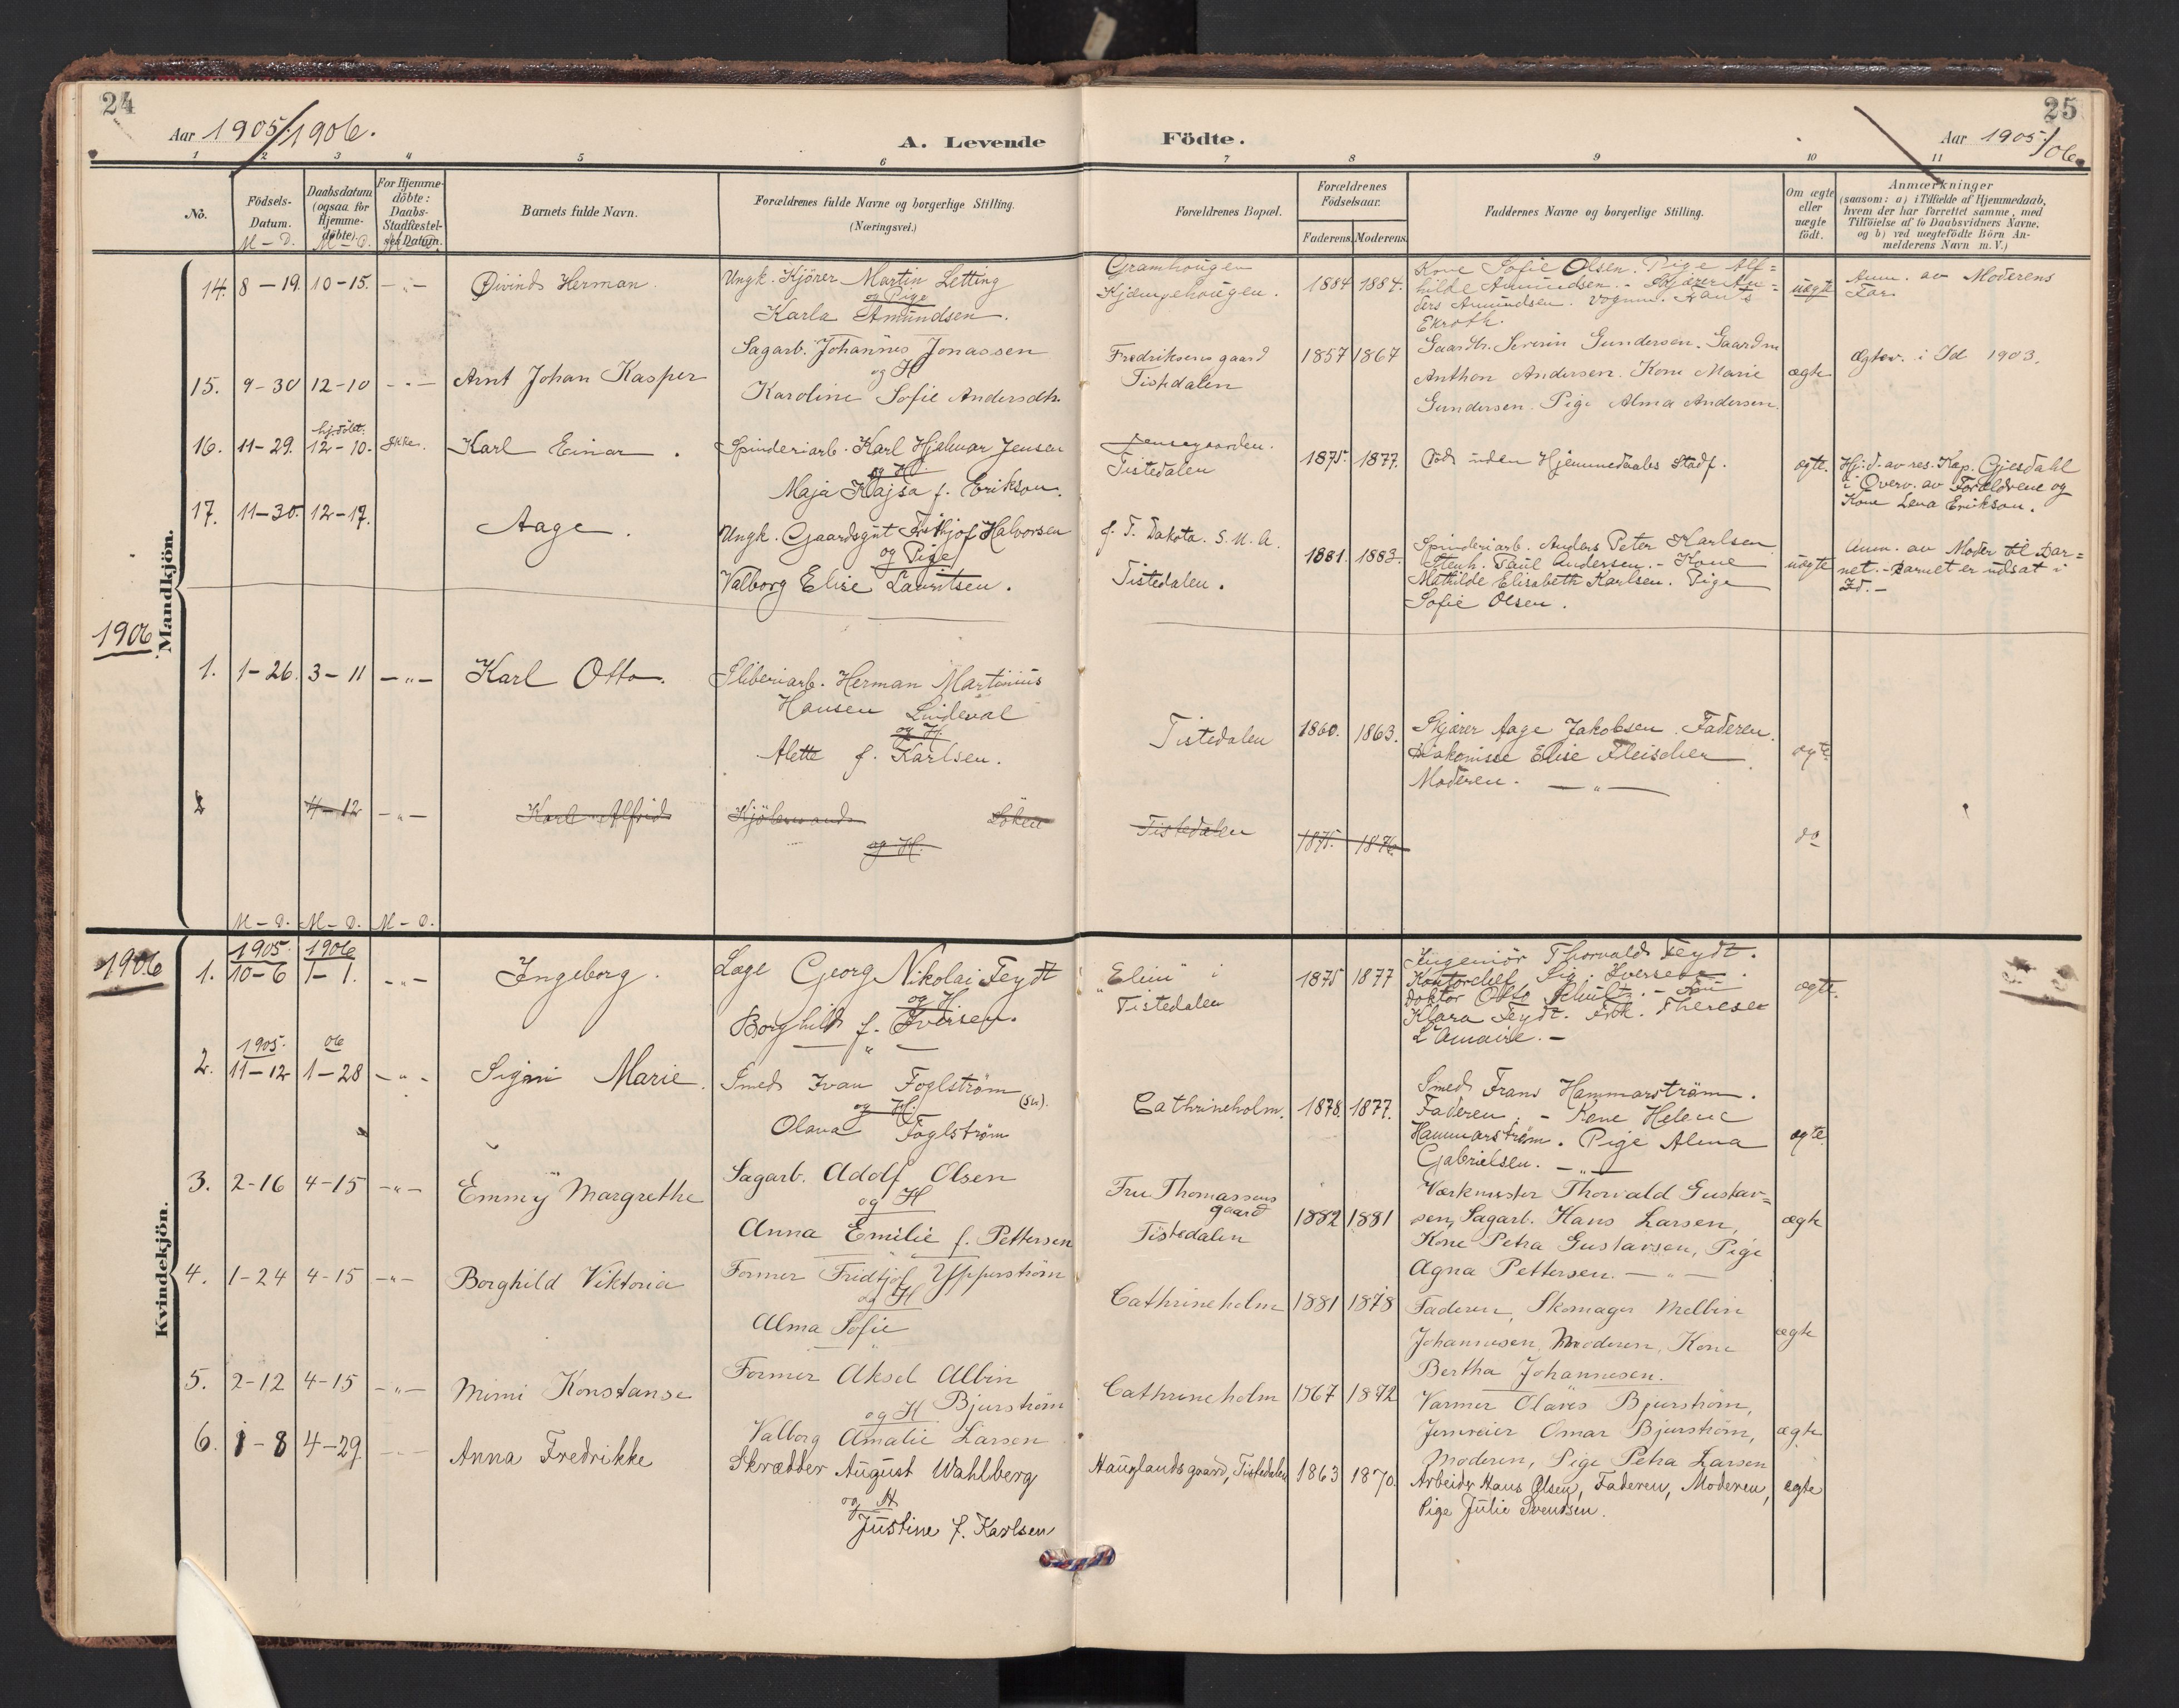 24
Aar 1905/1906.
A. Levende
Födte.
25
Aar 1905/06.
1 2 3 4 5 6 7 8 9 10 11
No.
Födsels-
Datum.
M – D.
Daabsdatum
(ogsaa for
Hjemme-
döbte).
M – D.
For Hjemme-
döbte:
Daabs-
Stadfæstel-
ses Datum.
Barnets fulde Navn.
Forældrenes fulde Navne og borgerlige Stilling.
(Næringsvei.)
Forældrenes Bopæl.
Forældrenes
Födselsaar.
Faderens. Moderens.
Faddernes Navne og borgerlige Stilling.
Om ægte
eller
uægte
födt.
Anmærkninger
(saasom: a) i Tilfælde af Hjemmedaab,
hvem der har forrettet samme, med
Tilföielse af to Daabsvidners Navne.
og b) ved uægtefödte Börn An-
melderens Navn m. V.)
Mandkjön.
14. 8 – 19. 10 – 15. – „ –
Øivind Herman.
Ungk. Kjörer Martin Letting
og Pige
Karla Amundsen.
Gramhougen
Kjæmpehougen.
1884 1884.
Kone Sofie Olsen. Pige Alf=
hilde Amundsen. –
ders Amundsen. Vognm. Hans
Ekroth.
uægte
Anm. av Moderens
Far.
15. 9 – 30 12 – 10 – „ –
Arnt Johan Kasper
Sagarb. Johannes Jonassen
og H
Karoline Sofie Andersdtr.
Fredriksens gaard
Tistedalen
1857 1867
Gaardbr. Severin Gundersen. Gaardm
Anthon Andersen. Kone Marie
Gundersen. Pige Alma Andersen.
ægte
Ægtev. i Id 1903.
16. 11 – 29. hj.döbt. 12 – 10. Ikke.
Karl Einar.
Spinderiarb. Karl Hjalmar Jensen
og H.
Maja Kajsa f. Erikson.
Jensegaarden.
Tistedalen
1875. 1877.
Död uden Hjemmedaabs Stadf.
ægte.
Hj.d. av res. Kap. Gjesdahl
i Overv. av Forældrene og
Kone Lena Erikson.
17. 11 – 30. 12 – 17.
Aage.
Ungk. Gaardsgut Frithjof Halvorsen
og Pige
Valborg Elise Lauritsen.
f. T. Dakota. S. U. A.
Tistedalen.
1881. 1883.
Spinderiarb. Anders Peter Karlsen
Stenh. Paul Andersen. – Kone
Mathilde Elisabeth Karlsen. Pige
Sofie Olsen.
uægte
Anm. av Moder til Bar=
net. – Barnet er udsat i
Id. –
1906
1. 1 – 26. 3 – 11 – „ –
Karl Otto.
Sliberiarb. Herman Martinius
Hansen Lindeval
og H.
Alette f. Karlsen.
Tistedalen
1860. 1863.
Skjærer Aage Jakobsen. Faderen.
Diakonisse Elise Fleischer
Moderen. – „ –
ægte.
2 4 – 12 – „ –
Karl Alfrid
Kjöbmand Löken
og H.
Tistedalen
1875. 1876.
do
M – D. M – D. M – D.
1906
Kvindekjön.
1. 1905. 10 – 6 1906 1 – 1. – „ –
Ingeborg.
Læge Georg Nikolai Feydt
og H.
Borghild f. Iversen.
„Elim“ i
Tistedalen
1875 1877
Ingeniör Thorvald Feydt.
Kontorchef Sig. Iversen.
Doktor Otto Schultz. – Fru
Klara Feydt. Frk. Therese
L'Amaire. –
ægte.
2. 1905. 11 – 12 06 1 – 28 – „ –
Signi Marie.
Smed Ivan Foglström (sv).
og H.
Olava Foglström
Cathrineholm.
1878. 1877.
Smed Frans Hammarström.
Faderen. – Kone Helene
Hammarström. Pige Alma
Gabrielsen. – „ –
ægte
3. 2 – 16 4 – 15 – „ –
Emmy Margrethe
Sagarb. Adolf Olsen
og H
Anna Emilie f. Pettersen
Fru Thomassens
gaard
Tistedalen
1882 1881
Værkmester Thorvald Gustav=
sen, Sagarb. Hans Larsen,
Kone Petra Gustavsen, Pige
Agna Pettersen. – „ –
ægte
4. 1 – 24 4 – 15 – „ –
Borghild Viktoria
Former Fridtjof Ypperström
og H
Alma Sofie
Cathrineholm
1881 1878
Faderen, Skomager Melbin
Johannesen, Moderen, Kone
Bertha Johannesen.
ægte
5. 2 – 12 4 – 15 – „ –
Mimi Konstanse
Former Aksel Albin
og H Bjurström
Valborg Amalie Larsen
Cathrineholm
1867 1872
Varmer Olaves Bjurström,
Jernreier Omar Bjurström,
Moderen, Pige Petra Larsen
ægte
6. 1 – 8 4 – 29 – „ –
Anna Fredrikke
Skrædder August Wahlberg
og H
Justine f. Karlsen
Hauglandsgaard, Tistedalen
1863 1870.
Arbeider Hans Olsen, Faderen, Moderen,
Pige Julie Svendsen.
ægte